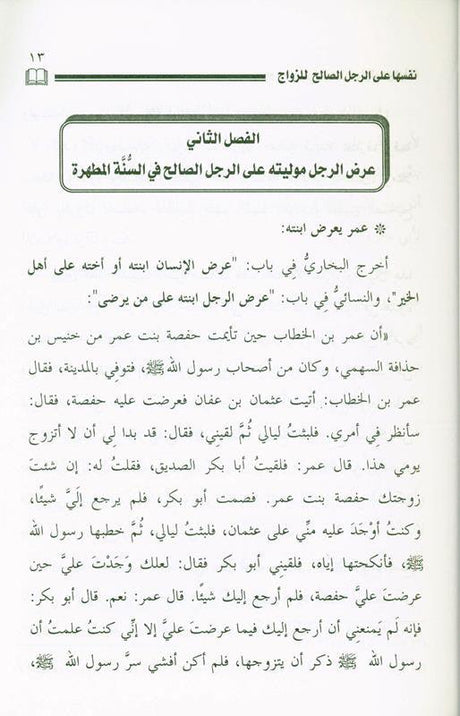 ١٣
نفسها على الرجل الصالح للزواج
الفصل الثاني
عرض الرجل موليته على الرجل الصالح في السُّنَّة المطهرة
* عمر يعرض ابنته:
أخرج البخاريُّ فِي باب: "عرض الإنسان ابنته أو أخته على أهل
الخير"، والنسائيُّ فِي باب: "عرض الرجل ابنته على من يرضى":
«أن عمر بن الخطاب حين تأيمت حفصة بنت عمر من خنيس بن
حذافة السهمي، وكان من أصحاب رسول الله ﷺ، فتوفي بالمدينة، فقال
عمر بن الخطاب: أتيت عثمان بن عفان فعرضت عليه حفصة، فقال:
سأنظر في أمري. فلبثتُ ليالي ثُمَّ لقيني، فقال: قد بدا لي أن لا أتزوج
يومي هذا. قال عمر: فلقيتُ أبا بكر الصديق، فقلتُ له: إن شئتَ
زوجتك حفصة بنت عمر. فصمت أبو بكر، فلم يرجع إلَيَّ شيئًا،
وكنتُ أوْجَدَ عليه منِّي على عثمان، فلبثتُ ليالي، ثُمَّ خطبها رسول الله
ﷺ، فأنكحتها إياه، فلقيني أبو بكر فقال: لعلك وَجَدْتَ عليَّ حين
عرضتَ عليَّ حفصة، فلم أرجع إليك شيئًا. قال عمر: نعم. قال أبو بكر:
فإنه لَم يَمنعنِي أن أرجع إليك فيما عرضتَ عليَّ إلا إنِّي كنتُ علمتُ أن
رسول الله ﷺ ذكر أن يتزوجها، فلم أكن أفشي سرَّ رسول الله ﷺ،